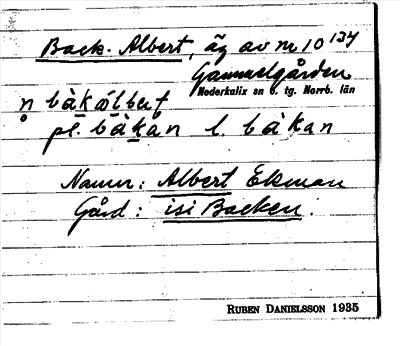 Back-Albert, äg av nr 10 134
Gammelgården
Nederkalix sn o. tg. Norrb. län
n bàkálbert
pl. bàkan l. bàkan
Namn: Albert Ekman
Gård: isi Backen.
RUBEN DANIELSSON 1935